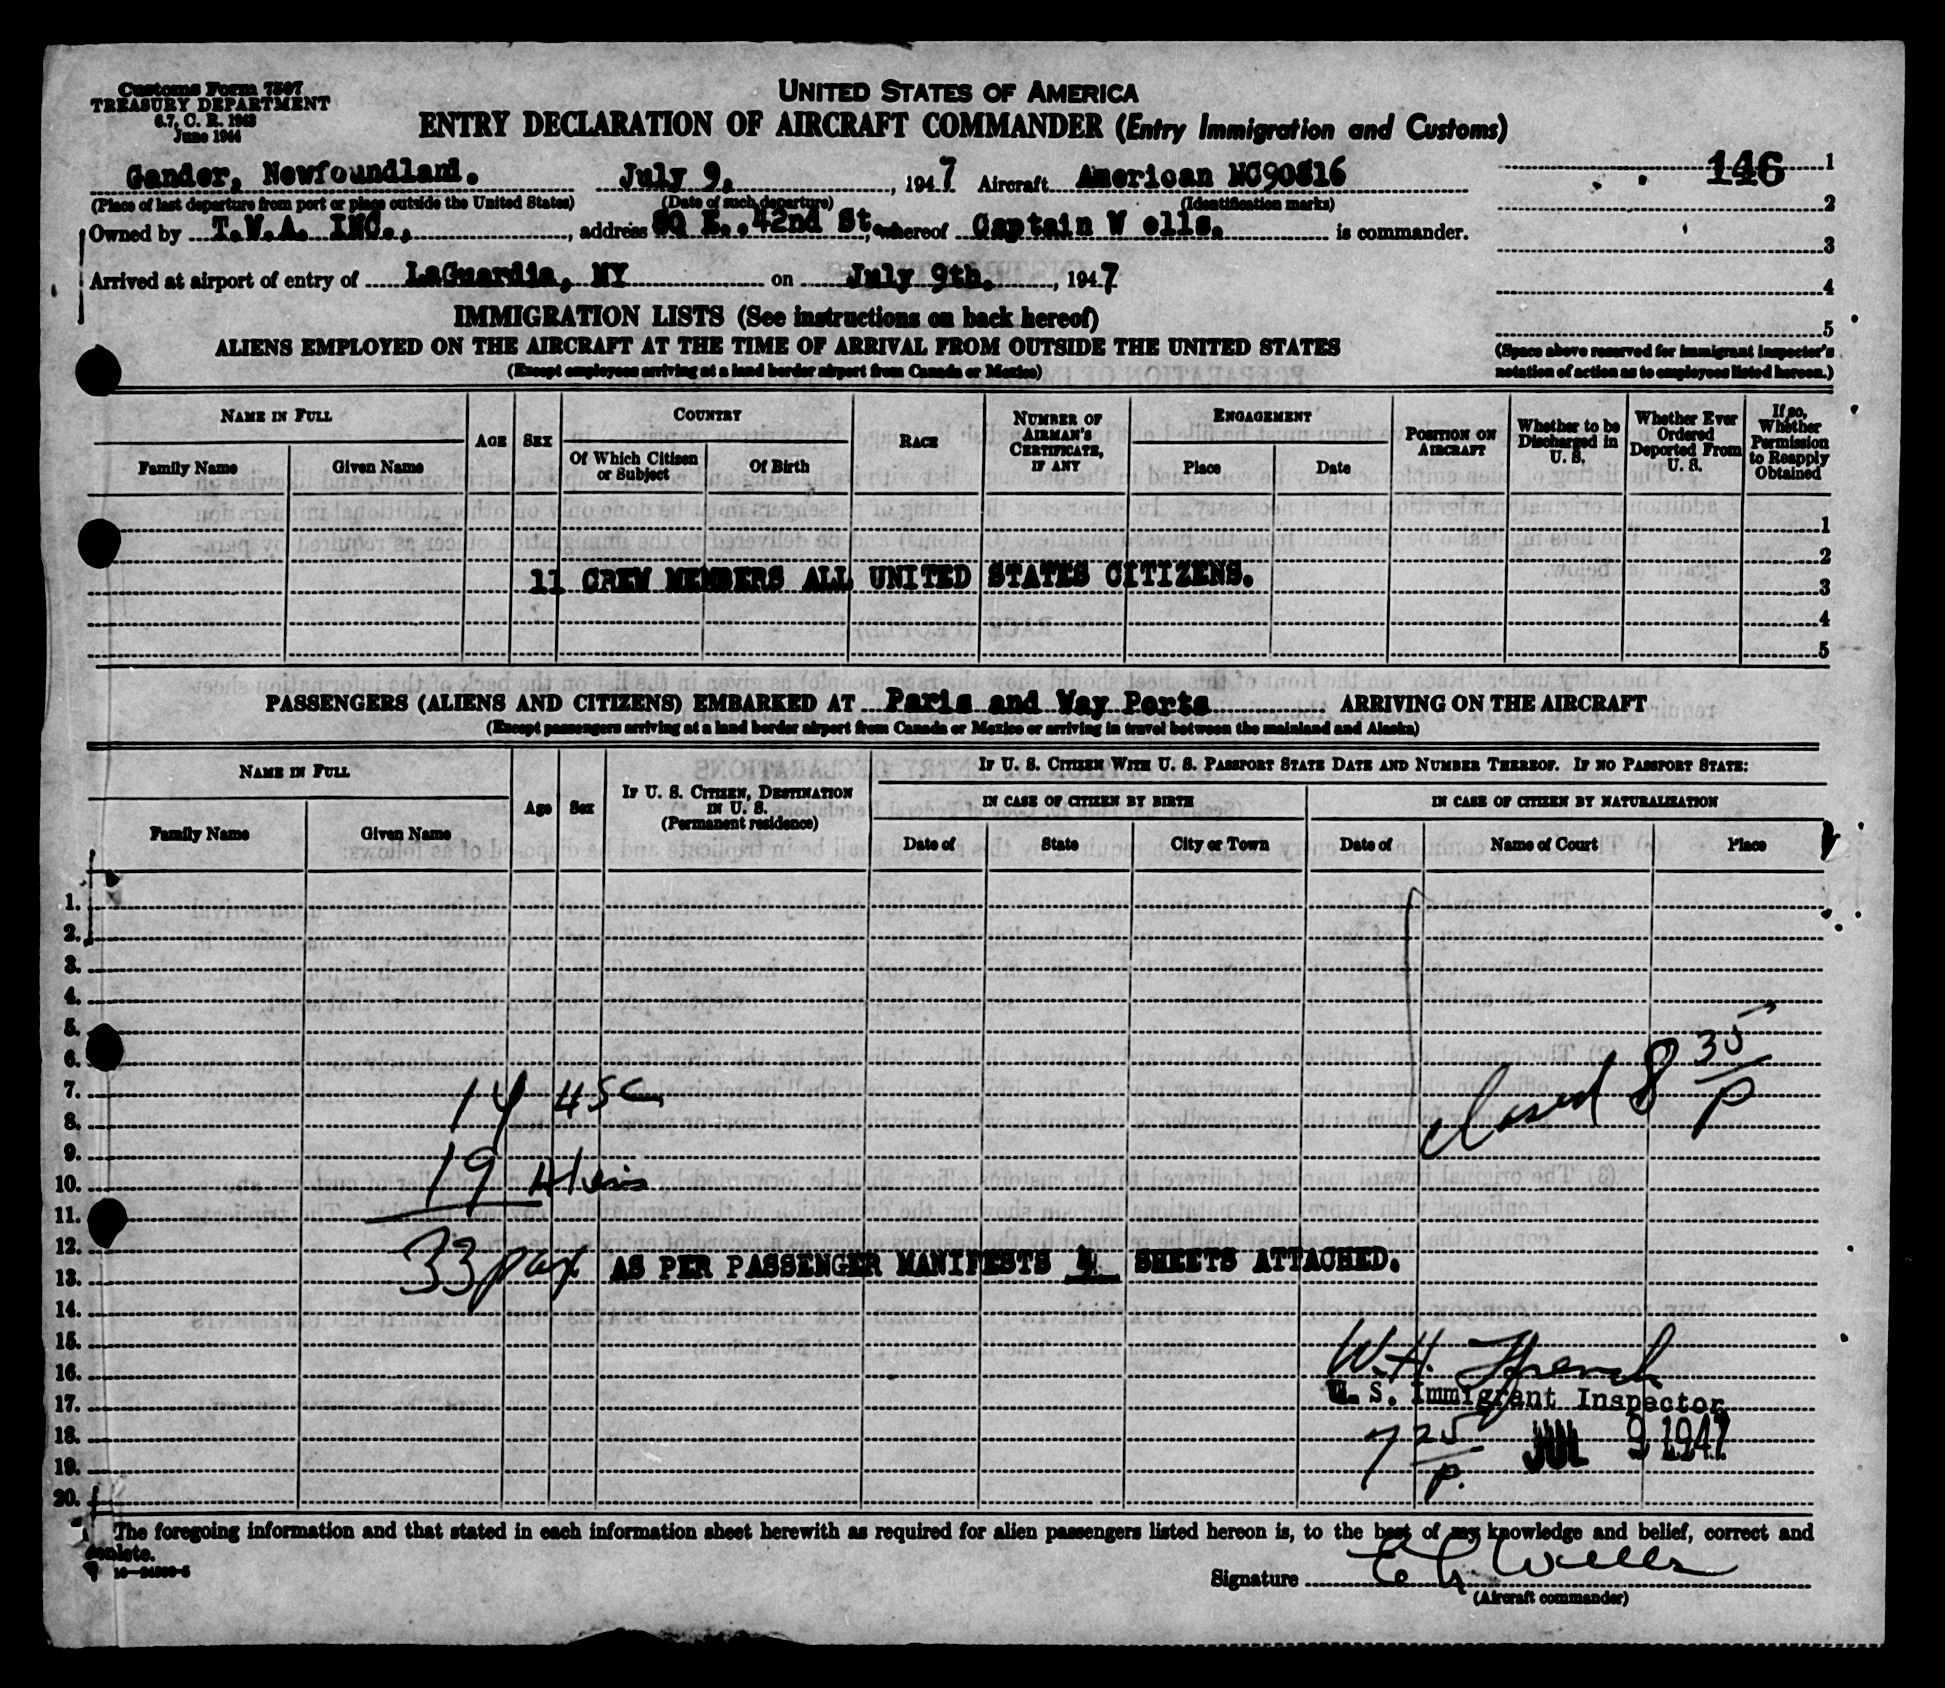 Customs Form 7507
TREASURY DEPARTMENT
6.7, C. R. 1943
June 1944
UNITED STATES OF AMERICA
ENTRY DECLARATION OF AIRCRAFT COMMANDER (Entry Immigration and Customs)
146 1
Gander, Newfoundland. July 9, , 1947 Aircraft American NC90816
(Place of last departure from port or place outside the United States) (Date of such departure) (Identification marks)
2
Owned by T.W.A. INC., , address E. 42nd St. , whereof Captain W ells. is commander.
3
Arrived at airport of entry of LaGuardia, NY on July 9th. , 1947
4
IMMIGRATION LISTS (See instructions on back hereof)
5
ALIENS EMPLOYED ON THE AIRCRAFT AT THE TIME OF ARRIVAL FROM OUTSIDE THE UNITED STATES
(Except employees arriving at a land border airport from Canada or Mexico)
(Space above reserved for immigrant inspector's
notation of action as to employees listed hereon.)
NAME IN FULL
Family Name Given Name
AGE SEX
COUNTRY
Of Which Citizen or Subject Of Birth
RACE
NUMBER OF AIRMAN'S CERTIFICATE, IF ANY
ENGAGEMENT
Place Date
POSITION ON AIRCRAFT
Whether to be Discharged in U. S.
Whether Ever Ordered Deported From U. S.
If so, Whether Permission to Reapply Obtained
1
2
11 CREW MEMBERS ALL UNITED STATES CITIZENS. 3
4
5
PASSENGERS (ALIENS AND CITIZENS) EMBARKED AT Paris and Way Ports ARRIVING ON THE AIRCRAFT
(Except passengers arriving at a land border airport from Canada or Mexico or arriving in travel between the mainland and Alaska)
NAME IN FULL
Family Name Given Name
Age Sex
IF U. S. CITIZEN, DESTINATION IN U. S.
(Permanent residence)
IF U. S. CITIZEN WITH U. S. PASSPORT STATE DATE AND NUMBER THEREOF. IF NO PASSPORT STATE:
IN CASE OF CITIZEN BY BIRTH IN CASE OF CITIZEN BY NATURALIZATION
Date of State City or Town Date of Name of Court Place
1.
2.
3.
4.
5.
6. closed 8 35/p
7. 14 USC
8.
9.
10. 19 Aliens
11.
12.
13. 33 pax AS PER PASSENGER MANIFESTS 4 SHEETS ATTACHED.
14.
15.
16. W.H. French
17. U. S. Immigrant Inspector
18. 7 25/p. JUL 9 1947
19.
20.
The foregoing information and that stated in each information sheet herewith as required for alien passengers listed hereon is, to the best of my knowledge and belief, correct and
complete.
Signature E G Wells
(Aircraft commander)